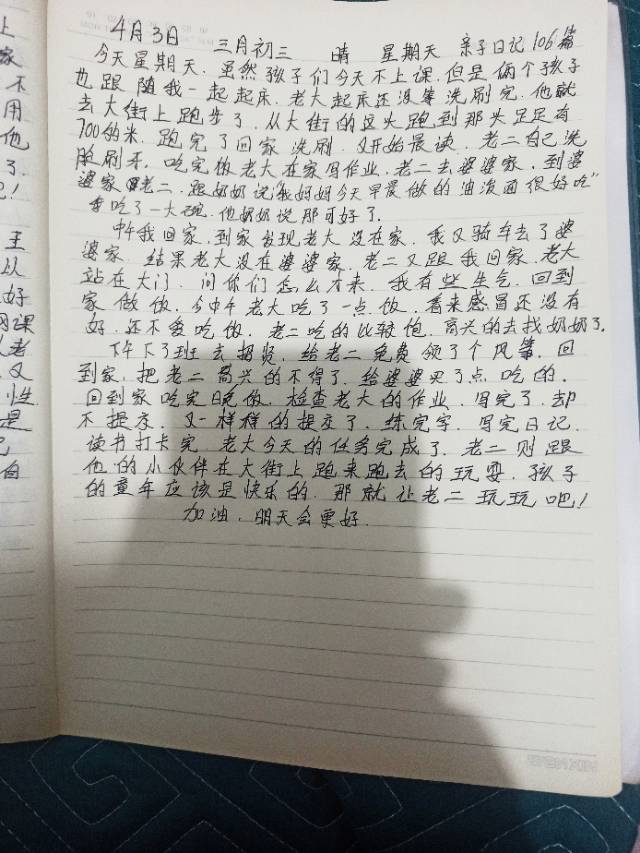 4月3日 三月初三 晴 星期天 亲子日记106篇
今天星期天.虽然孩子们今天不上课.但是俩个孩子
也跟随我一起起床.老大起床还没等洗刷完.他就
去大街上跑步了.从大街的这头跑到那头足足有
700多米.跑完了回家洗刷.又开始晨读.老二自己洗
脸刷牙.吃完饭老大在家写作业.老二去婆婆家.到婆
婆家老二.跟奶奶说"我妈妈今天早晨做的油泼面很好吃"
我吃了一大碗.他奶奶说那可好了.
中午我回家.到家发现老大没在家.我又骑车去了婆
婆家.结果老大没在婆婆家.老二又跟我回家.老大
站在大门.问你们怎么才来.我有些生气.回到
家做饭.今中午老大吃了一点饭.看来感冒还没有
好.还不爱吃饭.老二吃的比较饱.高兴的去找奶奶了.
下午下了班去招贤.给老二免费领了个风筝.回
到家.把老二高兴的不得了.给婆婆买了点吃的.
回到家吃完晚饭.检查老大的作业.写完了.却
不提交.又一样样的提交了.练完字.写完日记.
读书打卡完.老大今天的任务完成了.老二则跟
他的小伙伴在大街上跑来跑去的玩耍.孩子
的童年应该是快乐的.那就让老二玩玩吧!
加油.明天会更好.
上
家
不
用
他
了.
!
王
从
好
网课
老
又
性
是
白